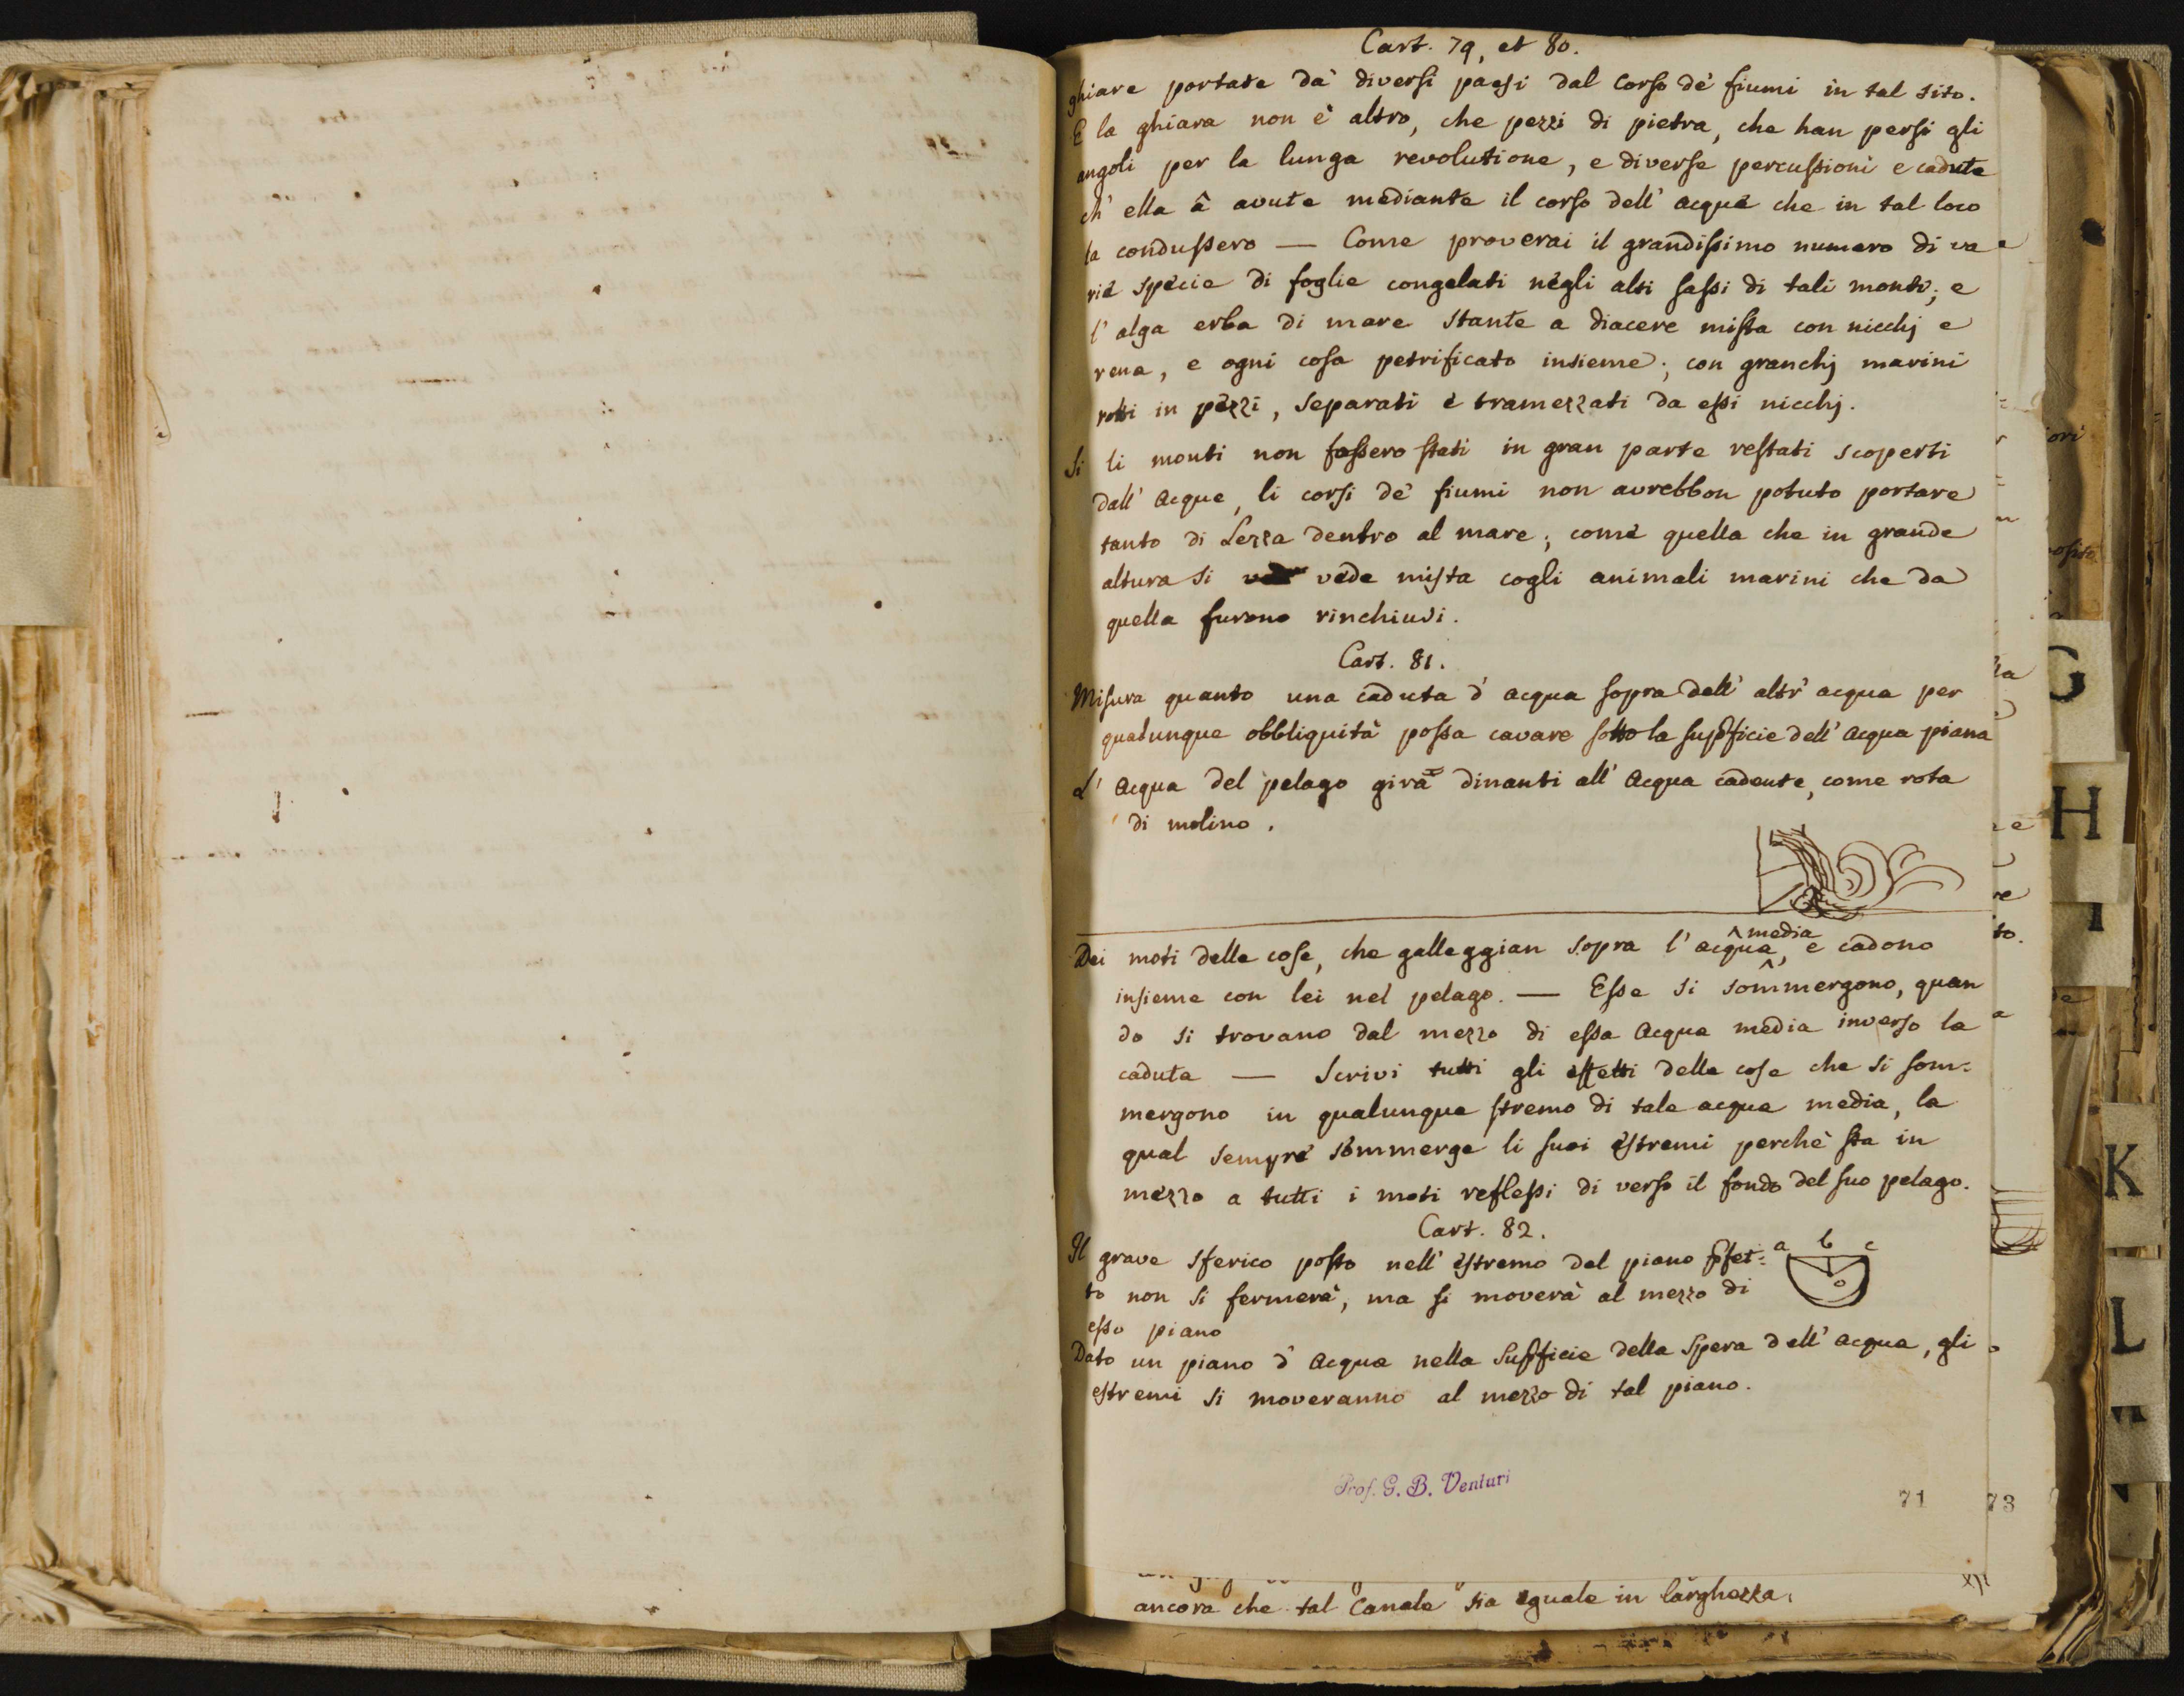 Cart. 79, et 80.
ghiare portate da diversi paesi dal corso de' fiumi in tal sito.
E la ghiara non è altro, che pezzi di pietra, che han persi gli
angoli per la lunga revolutione, e diverse percussioni e cadute
ch' ella â avute mediante il corso dell' acque che in tal loco
la condussero — Come proverai il grandissimo numero di va
rie specie di foglie congelati negli alti sassi di tali monti; e
l' alga erba di mare stante a diacere mista con nicchj e
rena, e ogni cosa petrificato insieme; con granchj marini
rotti in pezzi, separati e tramezzati da essi nicchj.
Si li monti non fossero stati in gran parte restati scoperti
dall' acque, li corsi de' fiumi non avrebbon potuto portare
tanto di Lezza dentro al mare; come quella che in grande
altura si vede mista cogli animali marini che da
quella furono rinchiusi.
Cart. 81.
Misura quanto una caduta d' acqua sopra dell' altr' acqua per
qualunque obbliquità possa cavare sotto la supficie dell' acqua piana
L' Acqua del pelago gira dinanti all' acqua cadente, come rota
di molino.
media
Dei moti delle cose, che galleggian sopra l' acqua, e cadono
insieme con lei nel pelago. — Esse si sommergono, quan
do si trovano dal mezzo di essa acqua media inverso la
caduta — Scrivi tutti gli effetti delle cose che si som-
mergono in qualunque stremo di tale acqua media, la
qual sempre sommerge li suoi estremi perchè sta in
mezzo a tutti i moti reflessi di verso il fondo del suo pelago.
Cart. 82.
Il grave sferico posto nell' estremo del piano pfet-
a b c
to non si fermerà, ma si moverà al mezzo di
esso piano
Dato un piano d' acqua nella supficie della spera dell' acqua, gli
estremi si moveranno al mezzo di tal piano.
Prof. G. B. Venturi
71
73
ancora che tal Canale sia eguale in larghezza.
G
H
I
K
L